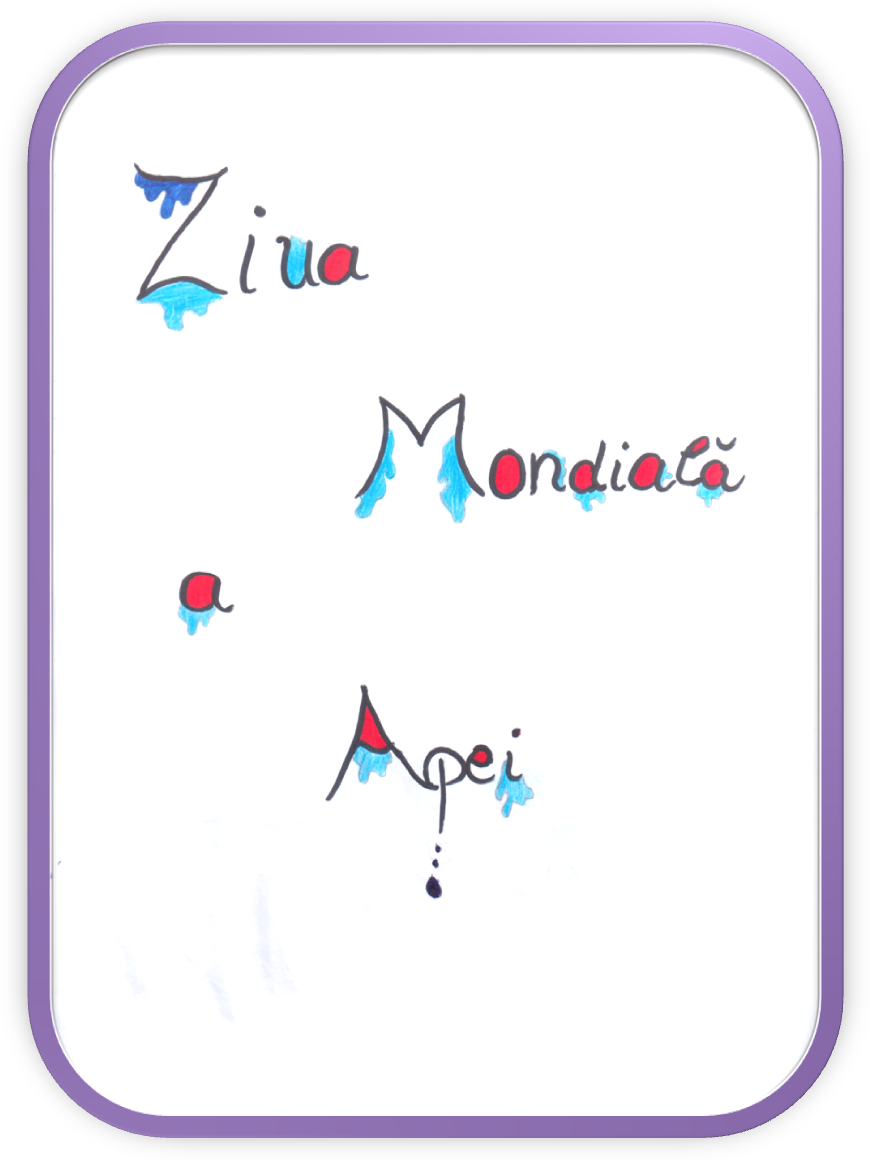 Ziua
Mondială
a
Apei